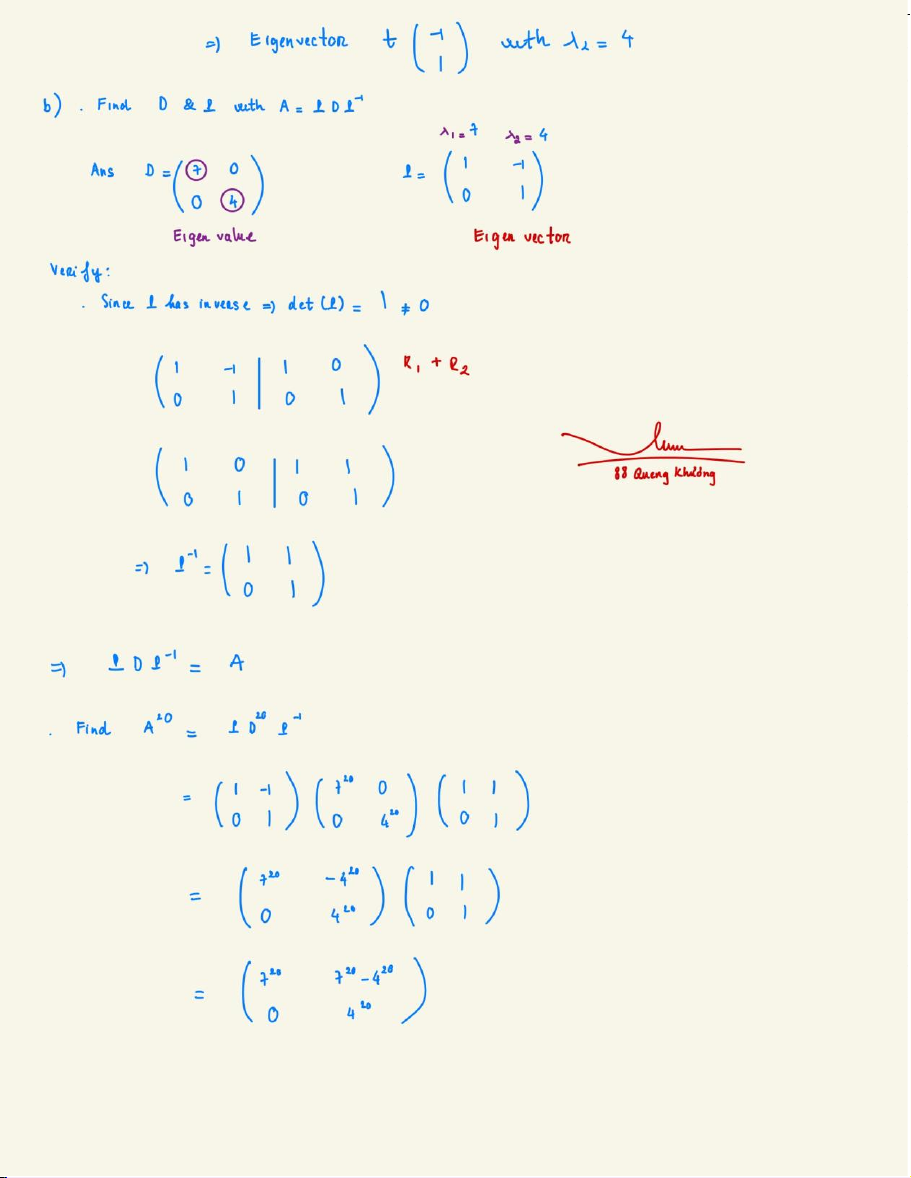 =) Eigenvector t (-1 1) with λ₂ = 4
b) . Find D & P with A = P D P⁻¹
λ₁ = 7 λ₂ = 4
Ans D = (7 0 P = (1 -1
0 4) 0 1)
Eigen value Eigen vector
Verify:
. Since P has inverse =) det (P) = 1 ≠ 0
(1 -1 | 1 0 R₁ + R₂
0 1 | 0 1)
(1 0 | 1 1
0 1 | 0 1)
88 Quang Khương
=) P⁻¹ = (1 1
0 1)
=) P D P⁻¹ = A
. Find A²⁰ = P D²⁰ P⁻¹
= (1 -1 (7²⁰ 0 (1 1
0 1) 0 4²⁰) 0 1)
= (7²⁰ -4²⁰ (1 1
0 4²⁰) 0 1)
= (7²⁰ 7²⁰ - 4²⁰
0 4²⁰)